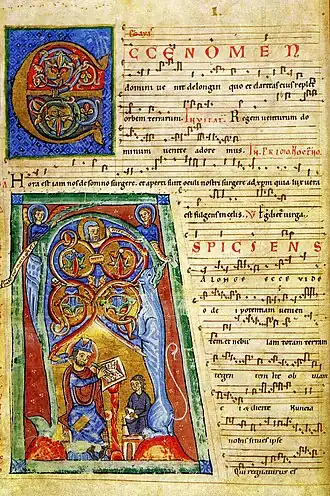 I.
CCE NOMEN
domini ve nit de longin quo et claritas eius replet
orbem terrarum. Invitat. Regem venturum do
minum venite adore mus.
Hora est iam nos de somno surgere. et aperti sunt oculi nostri surgere ad xpm quia lux vera
est fulgens in celis.
SPICIENS
A LONGE ECCE VIDEO
de i potentiam venien
tem et nebu lam totam terram
tegen tem Ite ob viam
e i et dicite Nuncia
nobis si tu es ipse
Qui regnaturus es